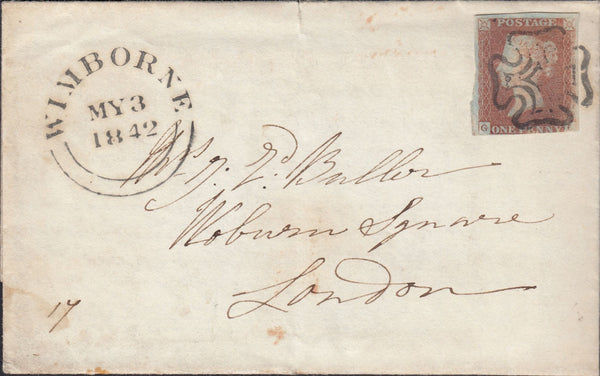 WIMBORNE
MY 3
1842
POSTAGE
G
ONE PENNY
Buller
Woburn Square
London
17